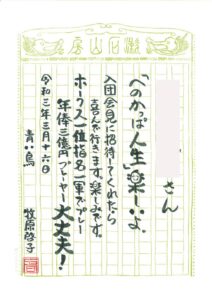 漱石山房
さん
「へのかっぱ人生」楽しいよ。
入団会見に招待してくれたら
喜んで行きます。楽しみです。
ホークス一位指名一軍でプレー
年俸三億円プレーヤー大丈夫!
令和三年三月十六日
青い鳥 牧原啓子